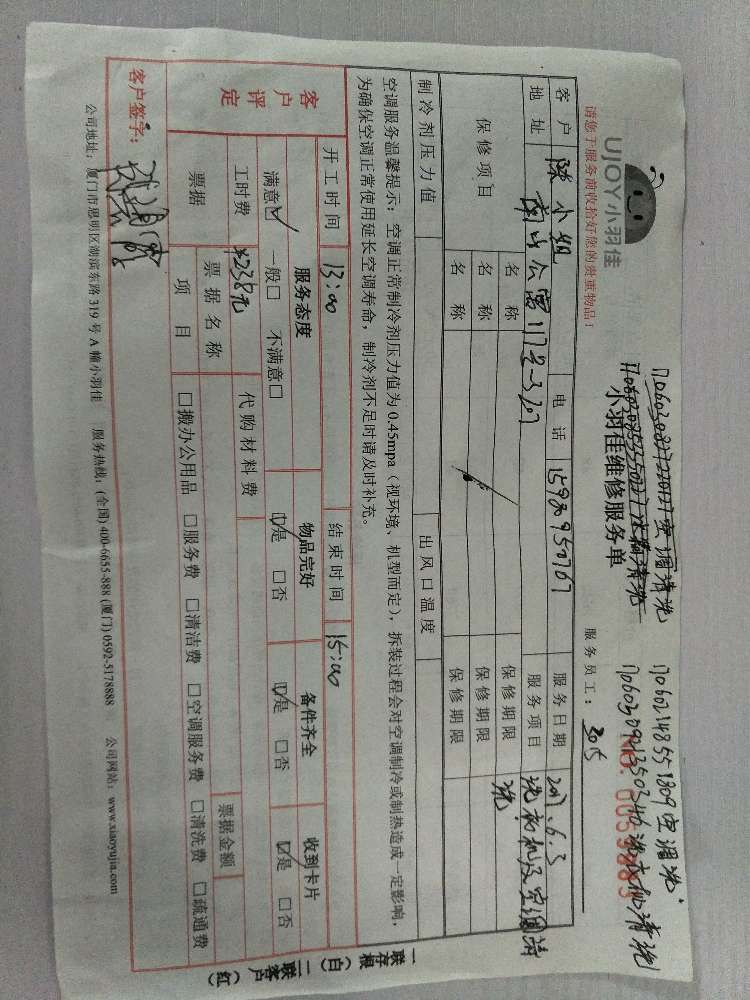 UJOY小羽佳
请您于服务前收拾好您的贵重物品！
小羽佳维修服务单
服务员工：3015
客户 陈小姐 电话 15980950767 服务日期 2017.6.3
地址 南山公寓117号-3707 服务项目 洗衣机及空调清洗
保修项目 名称 保修期限
名称 保修期限
名称 保修期限
制冷剂压力值 出风口温度
空调服务温馨提示：空调正常制冷剂压力值为0.45mpa（视环境、机型而定），拆装过程会对空调制冷或制热造成一定影响，
为确保空调正常使用延长空调寿命，制冷剂不足时请及时补充。
开工时间 13:00 结束时间 15:00
客户评定 服务态度 物品完好 备件齐全 收到卡片
满意☑ 一般□ 不满意□ ☑是 □否 ☑是 □否 ☑是 □否
工时费 ¥238元 代购材料费
票据 票据名称 票据金额
项目 □搬办公用品 □服务费 □清洁费 □空调服务费 □清洗费 □疏通费
客户签字：
公司地址：厦门市思明区湖滨东路319号A幢小羽佳 服务热线：(全国) 400-6655-888 (厦门) 0592-5178888 公司网站：www.xiaoyujia.com
一联存根（白）二联客户（红）